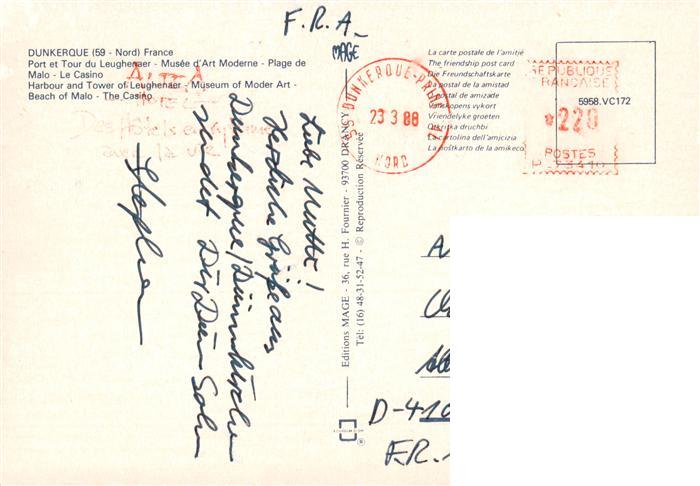 F.R.A.
MAGE
DUNKERQUE (59 - Nord) France
Port et Tour du Leughenaer - Musée d'Art Moderne - Plage de
Malo - Le Casino
Harbour and Tower of Leughenaer - Museum of Moder Art -
Beach of Malo - The Casino
Des Hôtels
avec la vie
La carte postale de l'amitié
The friendship post card
Die Freundschaftskarte
La postal de la amistad
postal de amizade
Vänskapens vykort
Vriendelyke groeten
druchbi
La cartolina dell'amicizia
La poŝtkarto de la amikeco
DUNKERQUE
23 3 88
NORD
RÉPUBLIQUE
FRANÇAISE
5958.VC172
220
POSTES
Liebe Mutter!
Herzliche Grüße aus
Dunkerque/Dünnkirchen
sendet Dir Dein Sohn
Stephan
Editions MAGE - 36, rue H. Fournier - 93700 DRANCY
Tél: (16) 48-31-52-47 - © Reproduction Réservée
D-410
F.R.